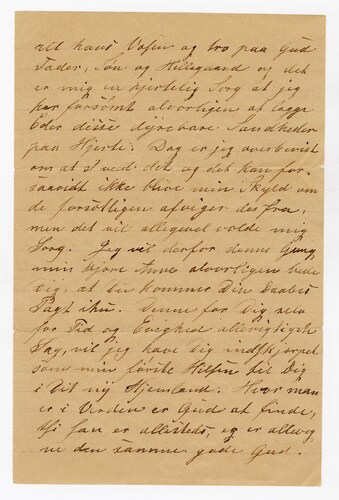 alt hans Væsen og tro paa Gud
Fader, Søn og Hilligaand og det
er mig en hjertelig Sorg at jeg
har forsømt alvorligen at lægge
Eder disse dyrebare Sandheder
paa Hjerte. Dog er jeg overbevist
om at I ved det og det kan for-
saavidt ikke blive min Skyld om
de forsætligen afviger des fra,
men det vil alligevel volde mig
Sorg. Jeg vil derfor denne Gang
min kjære Anne alvorligen bede
Dig, at du kommer Din Daabes
Pagt ihu. Denne for Dig selv
for Tid og Evighed allervigtigste
Sag, vil jeg have Dig indskjærpet
som min første Hilsen til Dig
i Dit ny Hjemland. Hvor man
er i Verden er Gud at finde,
thi han er allisteds, og er altid
den samme gode Gud.